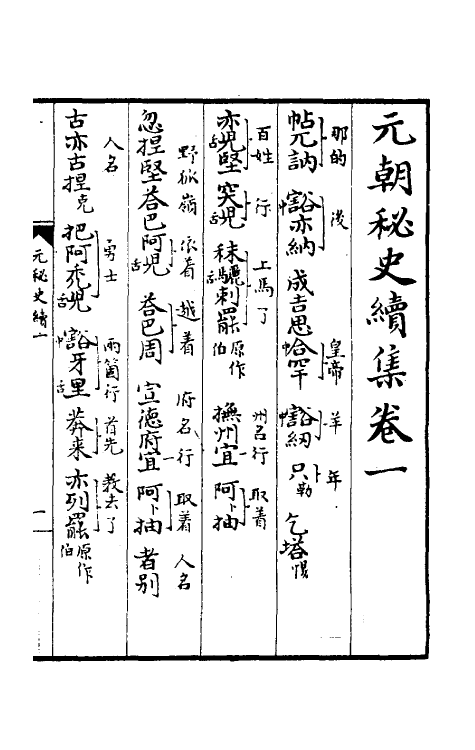 元朝秘史續集卷一
那的 後 皇帝 羊 年
帖兀訥 豁亦納 成吉思 中合罕 中豁紉 只勒 乞塔惕
百姓 行 上馬了 州名行 取着
亦舌兒堅 突舌兒 秣驪舌剌罷 原作伯 撫州宜 阿卜抽
野狐嶺 依着 越着 府名行 取着 人名
忽捏堅荅巴阿舌兒 荅巴周 宣德府宜 阿卜抽 者別
人名 勇士 兩箇行 首先 教去了
古亦古捏克 把阿禿舌兒 中豁牙舌里 莽來 亦列罷 原作伯
元秘史續一
一